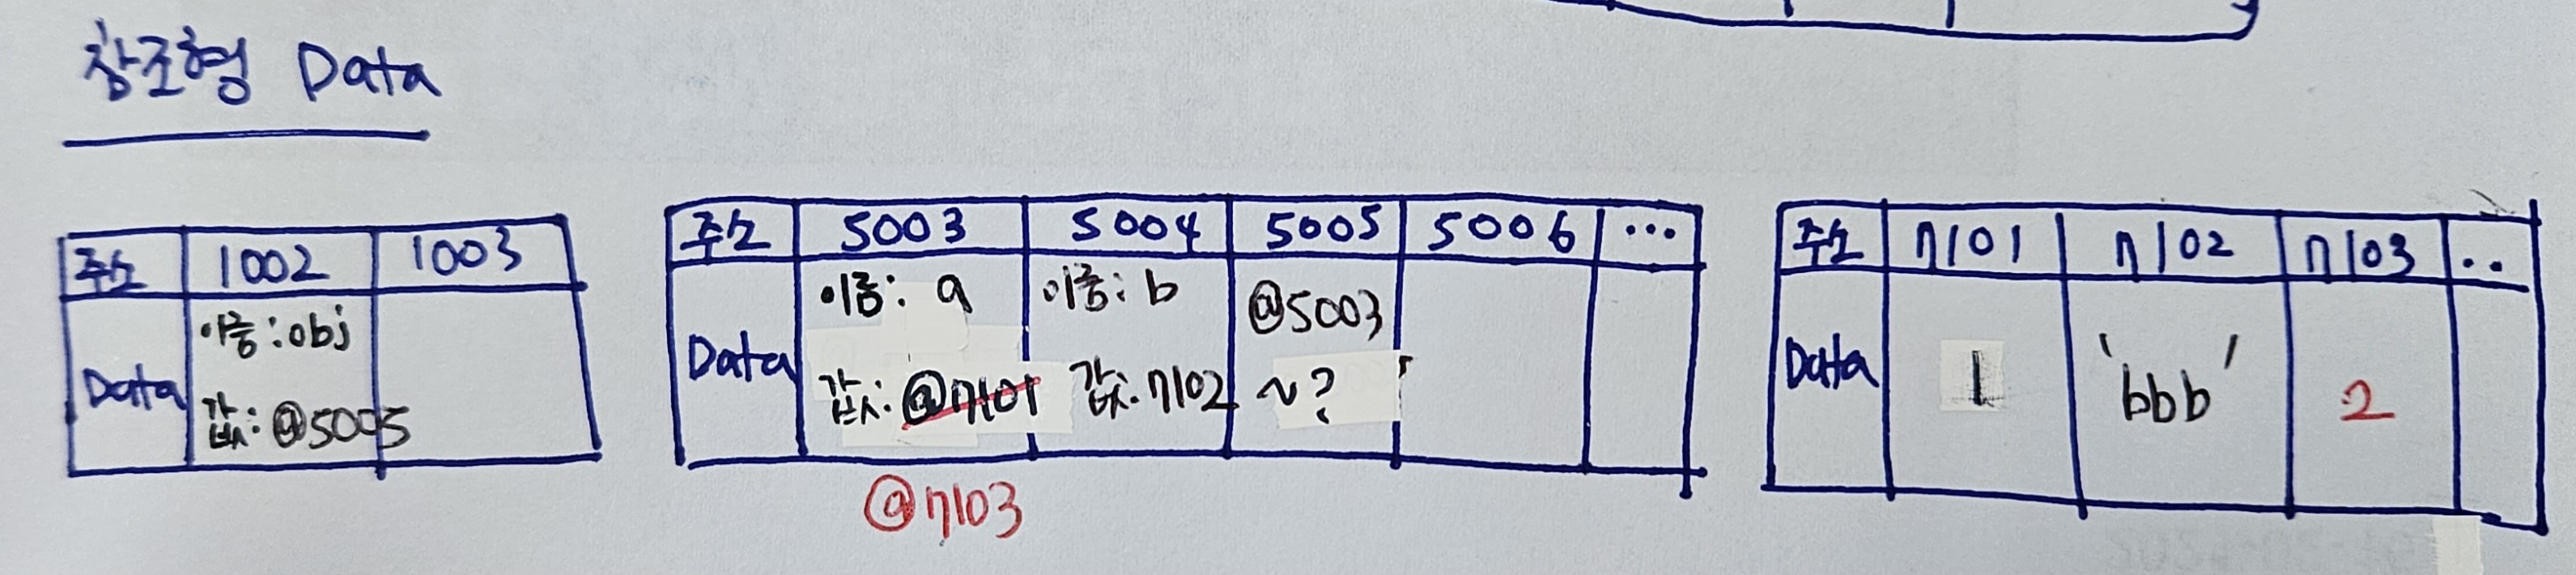 참조형 Data
주소 1002 1003
Data 이름: obj
값: @5005
주소 5003 5004 5005 5006 ...
Data 이름: a 이름: b @5003
값: @7101 값: 7102 ~?
@7103
주소 7101 7102 7103 ..
Data 1 'bbb' 2